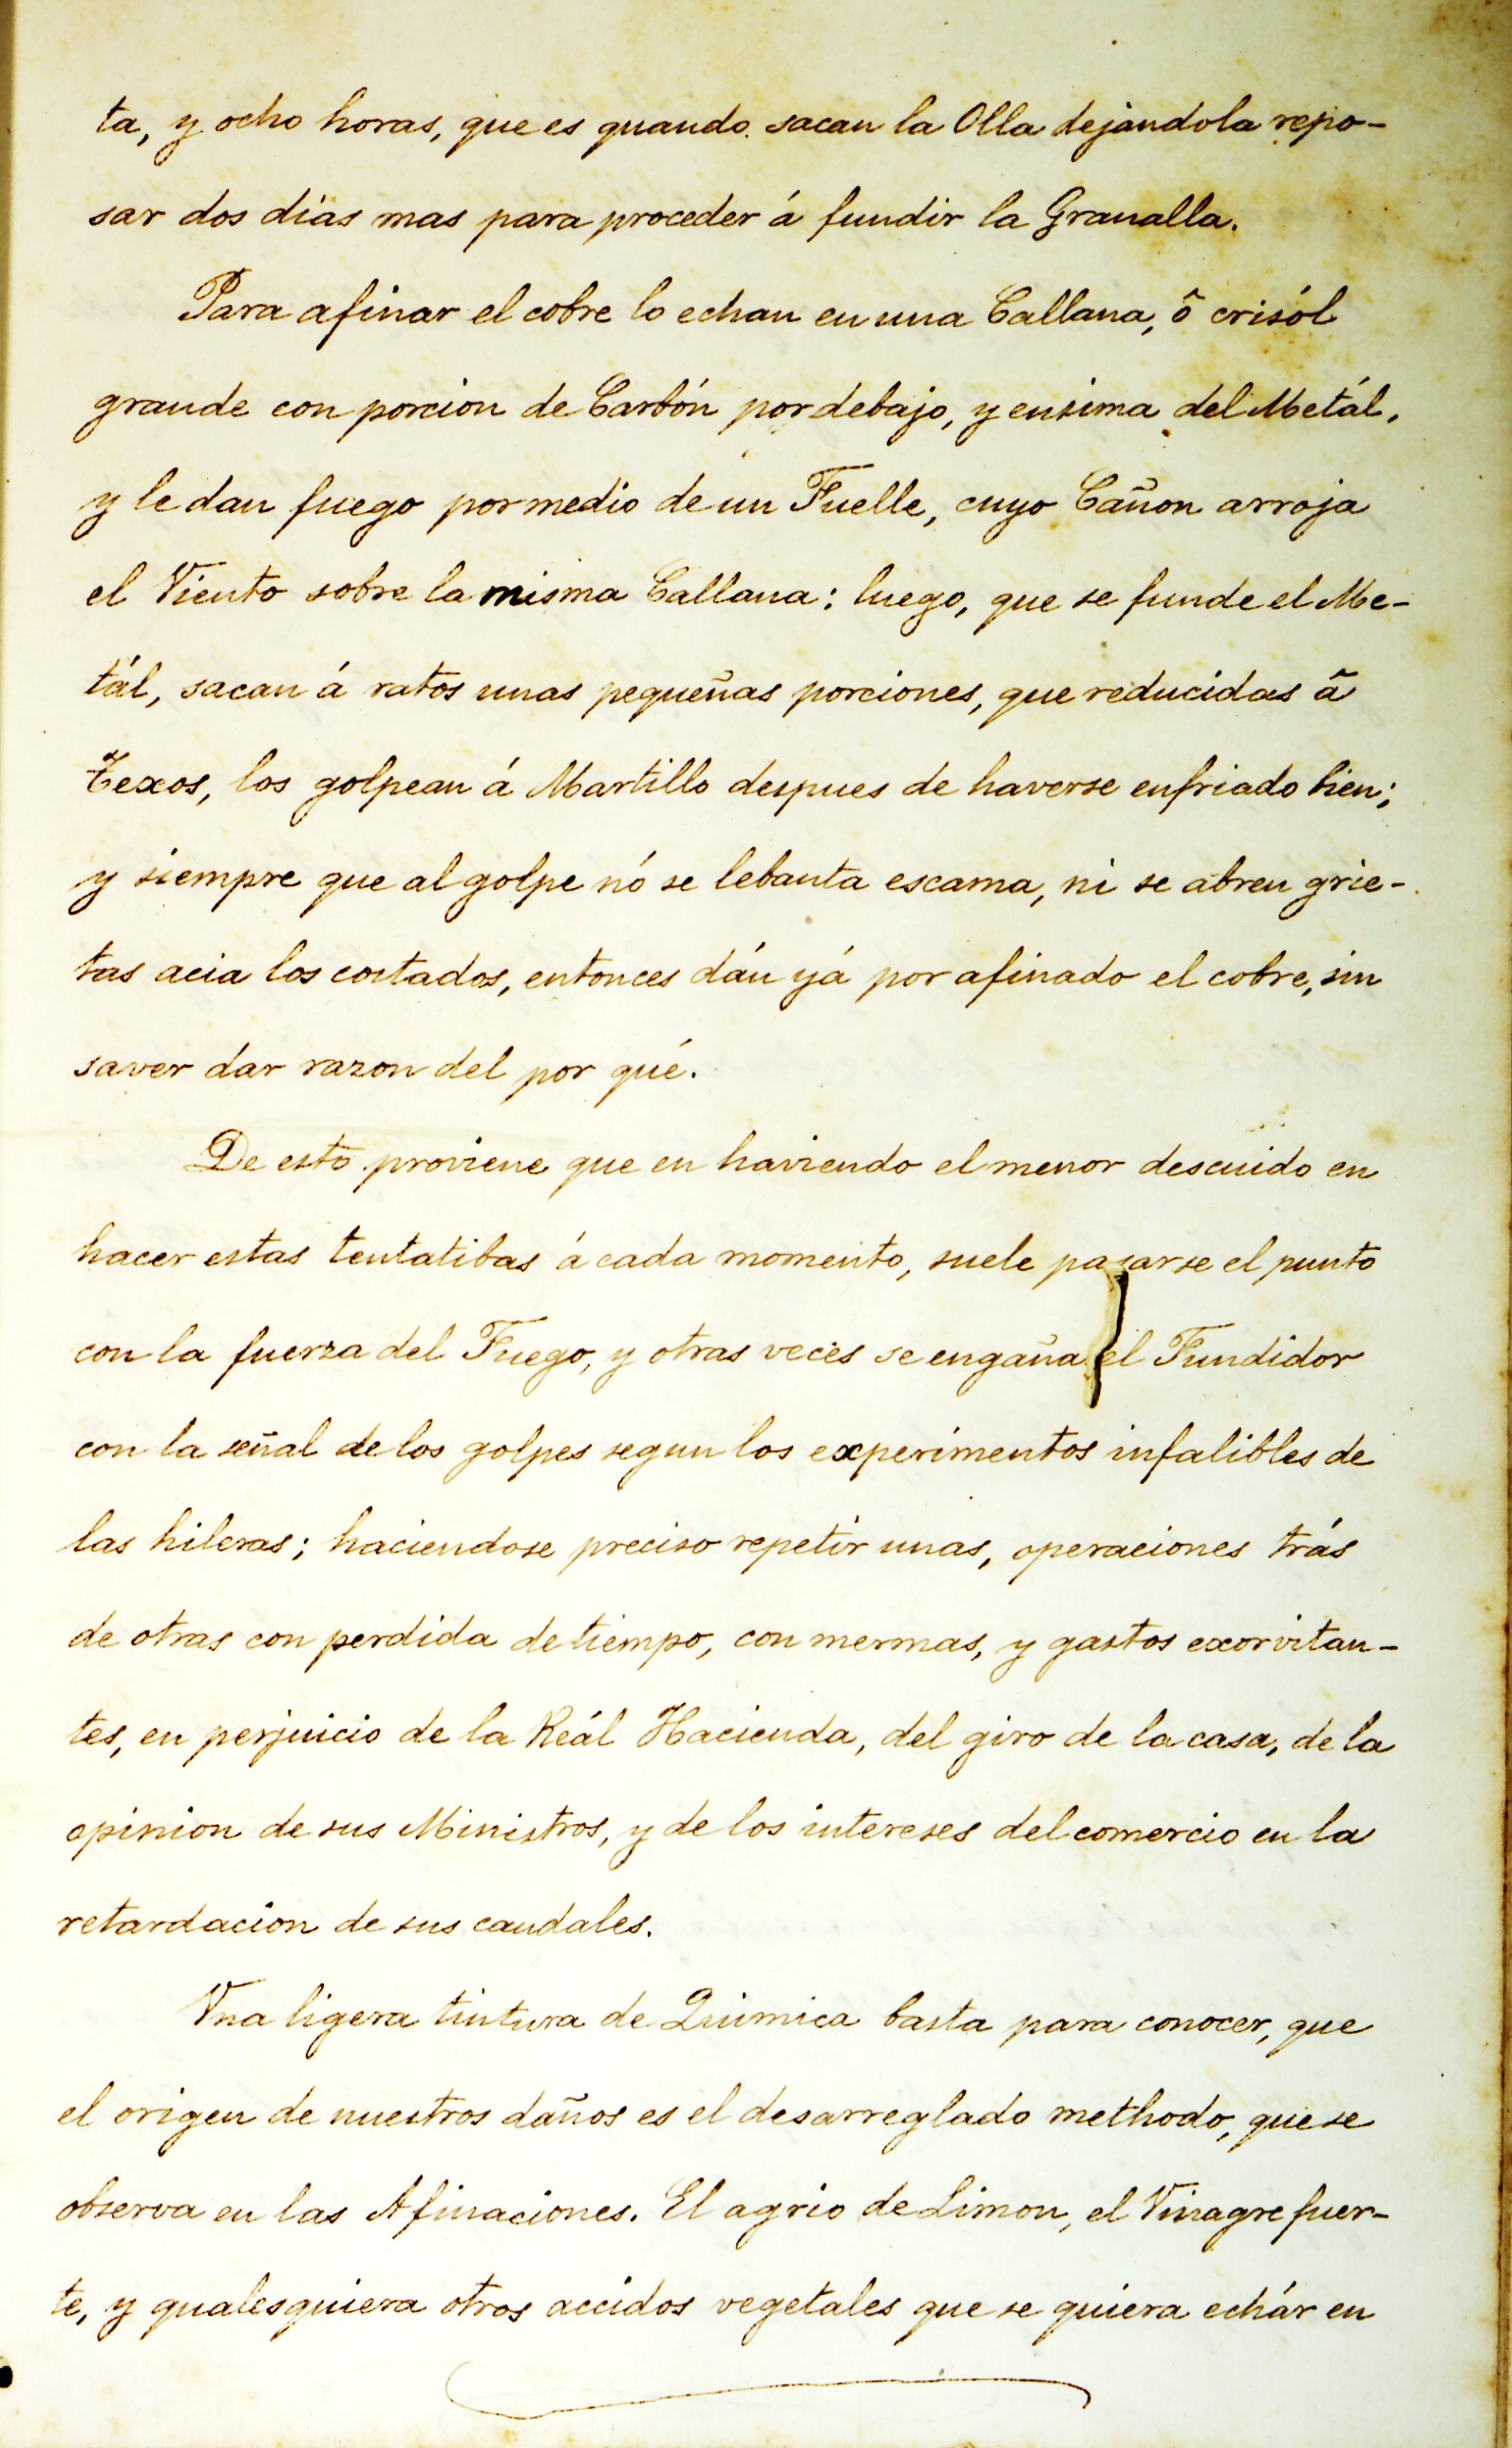 ta, y ocho horas, que es quando sacan la Olla dejandola repo-
sar dos dias mas para proceder á fundir la Granalla.
Para afinar el cobre lo echan en una Callana, ô crisól
grande con porcion de Carbón por debajo, y ensima del Metál,
y le dan fuego por medio de un Fuelle, cuyo Cañon arroja
el Viento sobre la misma Callana: luego, que se funde el Me-
tál, sacan á ratos unas pequeñas porciones, que reducidas ã
Texos, los golpean á Martillo despues de haverse enfriado bien;
y siempre que al golpe nó se lebanta escama, ni se abren grie-
tas acia los costados, entonces dán yá por afinado el cobre, sin
saver dar razon del por qué.
De esto proviene que en haviendo el menor descuido en
hacer estas tentatibas á cada momento, suele pasarse el punto
con la fuerza del Fuego, y otras veces se engaña el Fundidor
con la señal de los golpes segun los experimentos infalibles de
las hileras; haciendose preciso repetir unas, operaciones trás
de otras con perdida de tiempo, con mermas, y gastos exorvitan-
tes, en perjuicio de la Reál Hacienda, del giro de la casa, de la
opinion de sus Ministros, y de los intereses del comercio en la
retardacion de sus caudales.
Vna ligera tintura de Quimica basta para conocer, que
el origen de nuestros daños es el desarreglado methodo, que se
observa en las Afinaciones. El agrio de Limon, el Vinagre fuer-
te, y qualesquiera otros accidos vegetales que se quiera echár en